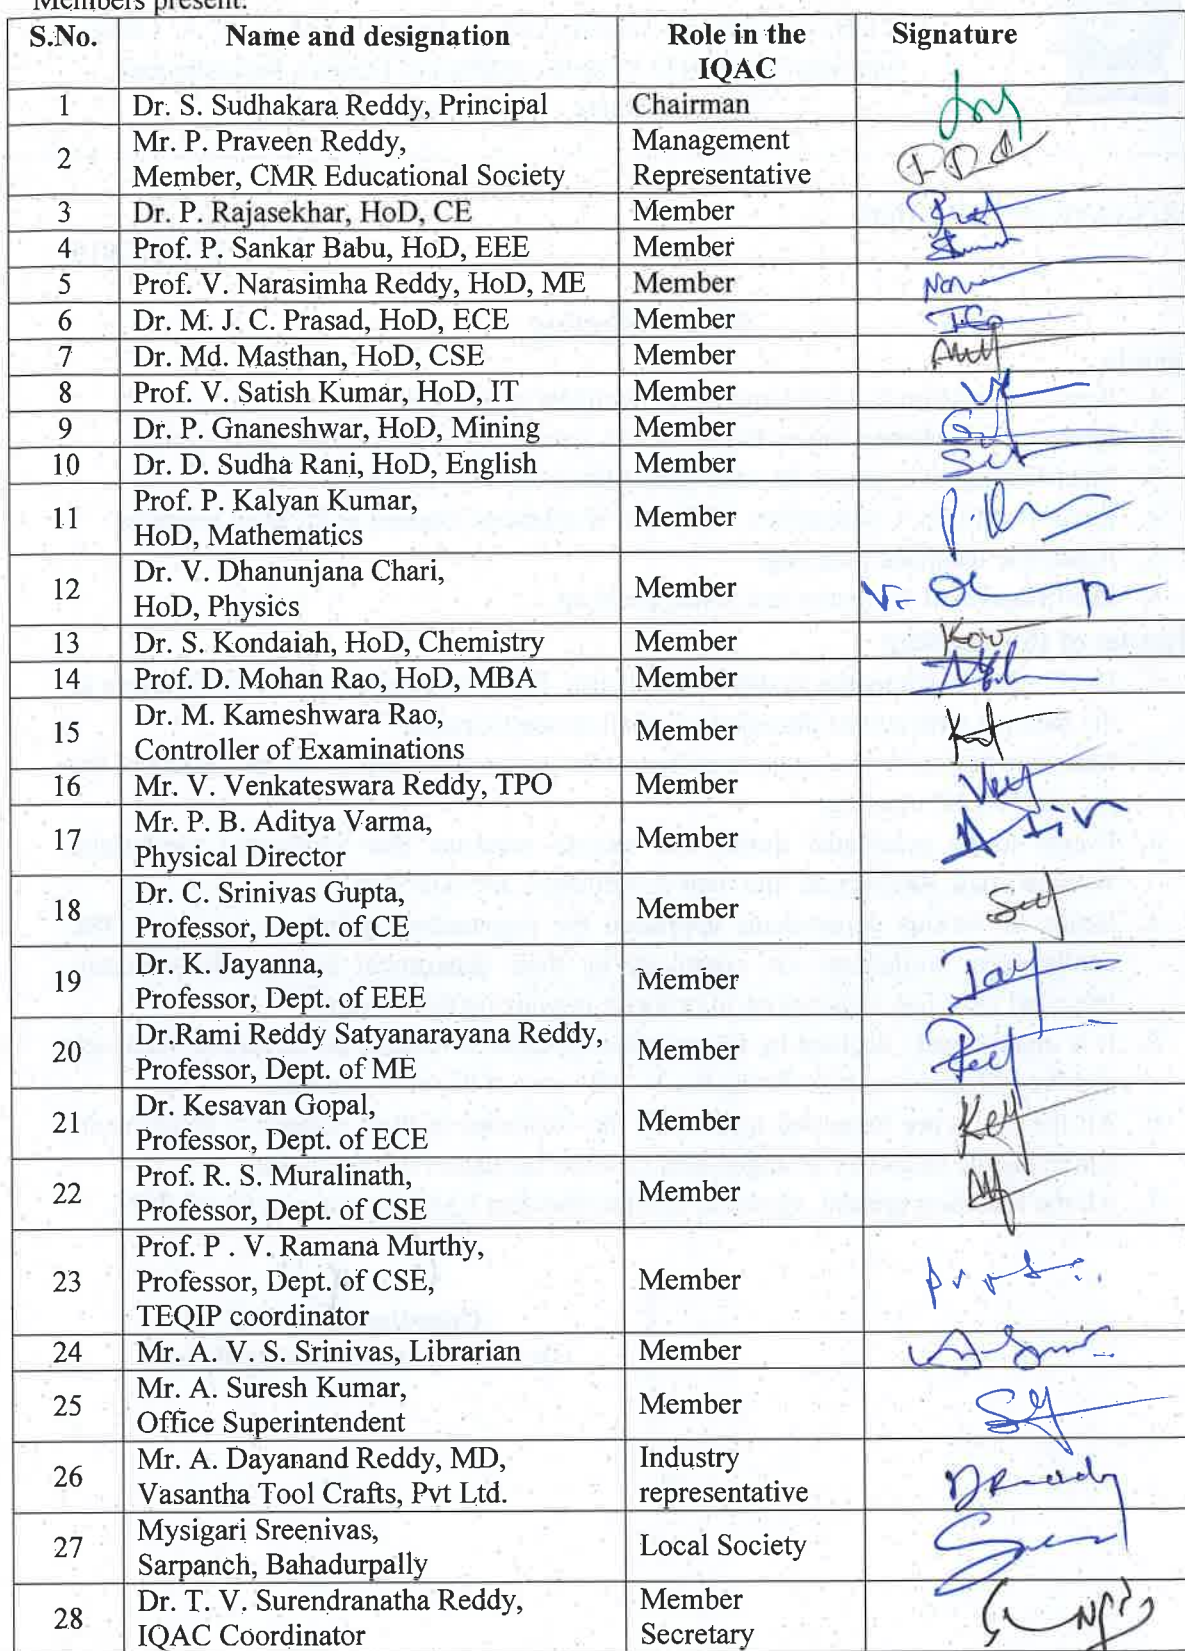 Members present:
S.No. Name and designation Role in the Signature
IQAC
1 Dr. S. Sudhakara Reddy, Principal Chairman
2 Mr. P. Praveen Reddy, Management
Member, CMR Educational Society Representative
3 Dr. P. Rajasekhar, HoD, CE Member
4 Prof. P. Sankar Babu, HoD, EEE Member
5 Prof. V. Narasimha Reddy, HoD, ME Member
6 Dr. M. J. C. Prasad, HoD, ECE Member
7 Dr. Md. Masthan, HoD, CSE Member
8 Prof. V. Satish Kumar, HoD, IT Member
9 Dr. P. Gnaneshwar, HoD, Mining Member
10 Dr. D. Sudha Rani, HoD, English Member
11 Prof. P. Kalyan Kumar, Member
HoD, Mathematics
12 Dr. V. Dhanunjana Chari, Member
HoD, Physics
13 Dr. S. Kondaiah, HoD, Chemistry Member
14 Prof. D. Mohan Rao, HoD, MBA Member
15 Dr. M. Kameshwara Rao, Member
Controller of Examinations
16 Mr. V. Venkateswara Reddy, TPO Member
17 Mr. P. B. Aditya Varma, Member
Physical Director
18 Dr. C. Srinivas Gupta, Member
Professor, Dept. of CE
19 Dr. K. Jayanna, Member
Professor, Dept. of EEE
20 Dr.Rami Reddy Satyanarayana Reddy, Member
Professor, Dept. of ME
21 Dr. Kesavan Gopal, Member
Professor, Dept. of ECE
22 Prof. R. S. Muralinath, Member
Professor, Dept. of CSE
23 Prof. P . V. Ramana Murthy, Member
Professor, Dept. of CSE,
TEQIP coordinator
24 Mr. A. V. S. Srinivas, Librarian Member
25 Mr. A. Suresh Kumar, Member
Office Superintendent
26 Mr. A. Dayanand Reddy, MD, Industry
Vasantha Tool Crafts, Pvt Ltd. representative
27 Mysigari Sreenivas, Local Society
Sarpanch, Bahadurpally
28 Dr. T. V. Surendranatha Reddy, Member
IQAC Coordinator Secretary